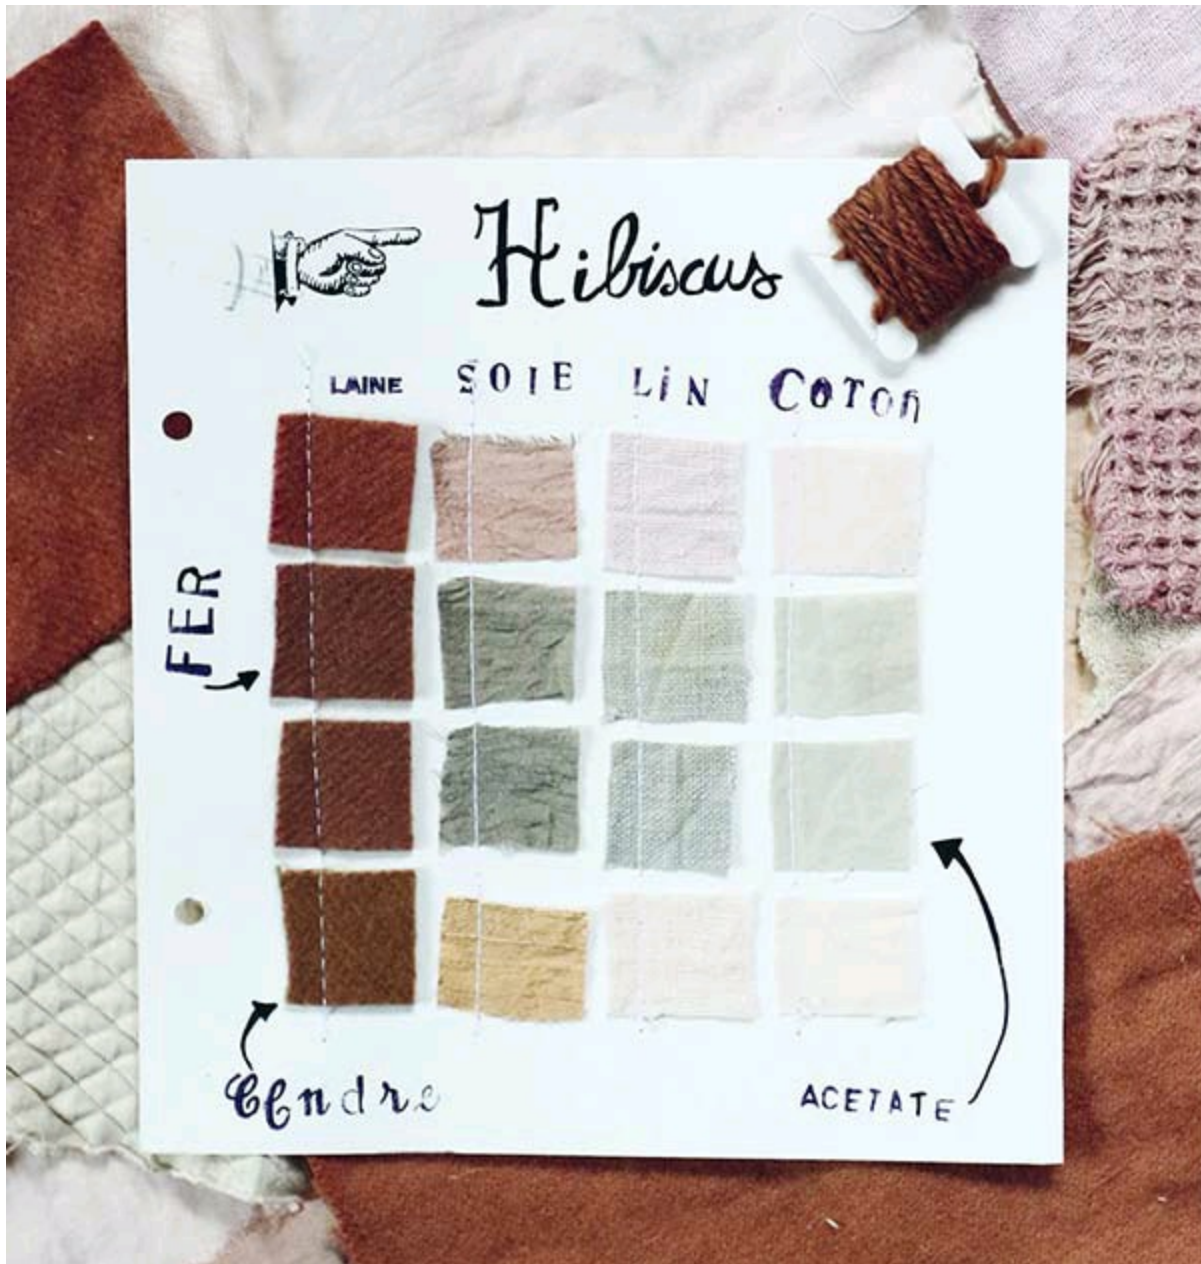 Hibiscus
LAINE SOIE LiN COTON
FER
CENdre
ACETATE